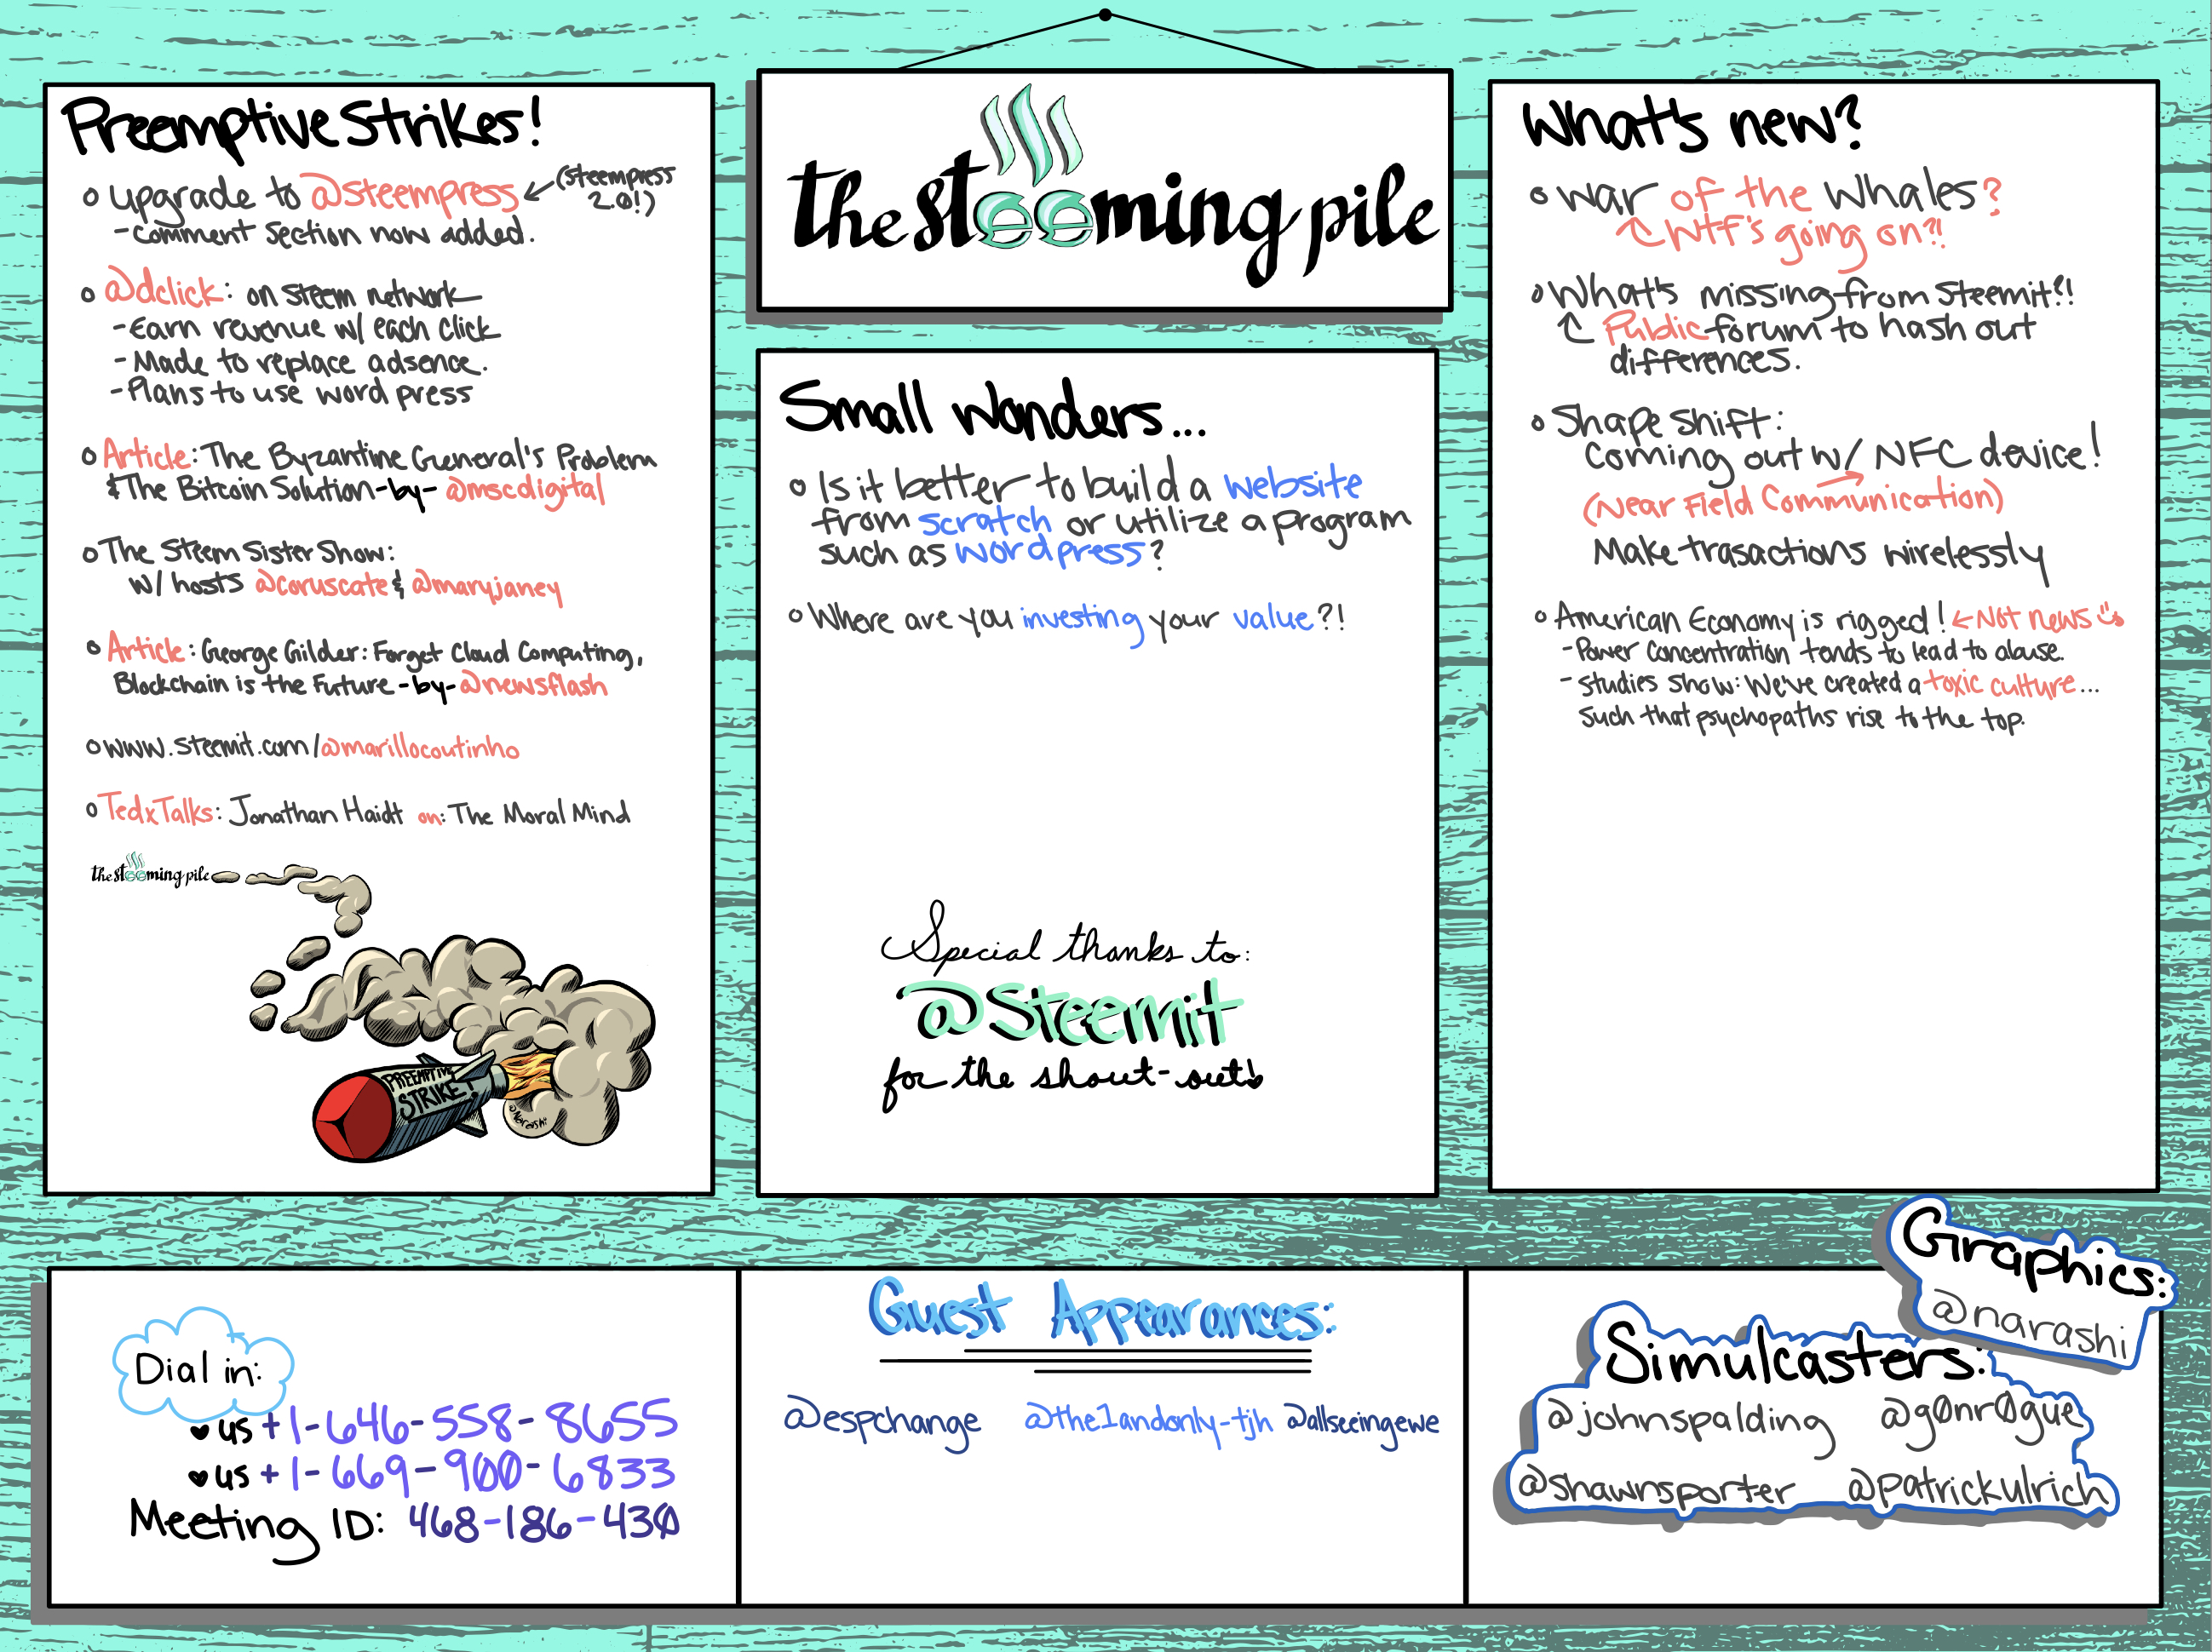 the steeming pile
Preemptive Strikes!
o upgrade to @steempress ← (steempress 2.0!)
- comment section now added.
o @dclick: on steem network
- Earn revenue w/ each click
- Made to replace adsence.
- Plans to use word press
o Article: The Byzantine General's Problem
& The Bitcoin Solution -by- @mscdigital
o The Steem Sister Show:
w/ hosts @coruscate & @maryjaney
o Article: George Gilder: Forget Cloud Computing,
Blockchain is the Future -by- @newsflash
o www.steemit.com/@marillocoutinho
o TedxTalks: Jonathan Haidt on: The Moral Mind
the steeming pile
PREEMPTIVE
STRIKE!
@Narashi
Small Wonders...
o Is it better to build a website
from scratch or utilize a program
such as wordpress?
o Where are you investing your value?!
Special thanks to:
@Steemit
for the shout-out!
What's new?
o War of the Whales?
Wtf's going on?!
o What's missing from Steemit?!
Public forum to hash out
differences.
o Shape Shift:
Coming out w/ NFC device!
(Near Field Communication)
Make trasactions wirelessly
o American Economy is rigged! ← Not news
- Power Concentration tends to lead to abuse.
- Studies Show: We've created a toxic culture...
Such that psychopaths rise to the top.
Dial in:
us +1-646-558-8655
us +1-669-900-6833
Meeting ID: 468-186-430
Guest Appearances:
@espchange @the1andonly-tjh @allseeingewe
Graphics:
@narashi
Simulcasters:
@johnspalding @g0nr0gue
@shawnsporter @patrickulrich